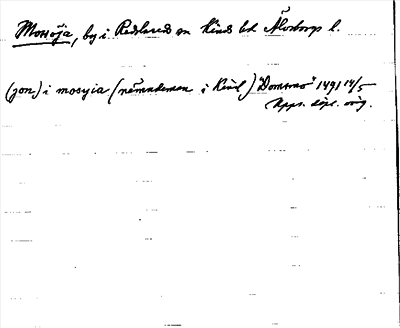 Mossöja, by i Redslared sn Kinds hd Älvsborgs l.
(jon) i mosyia (nämndeman i Kind) "Domsmo" 1491 14/5
Upps. dipl. orig.